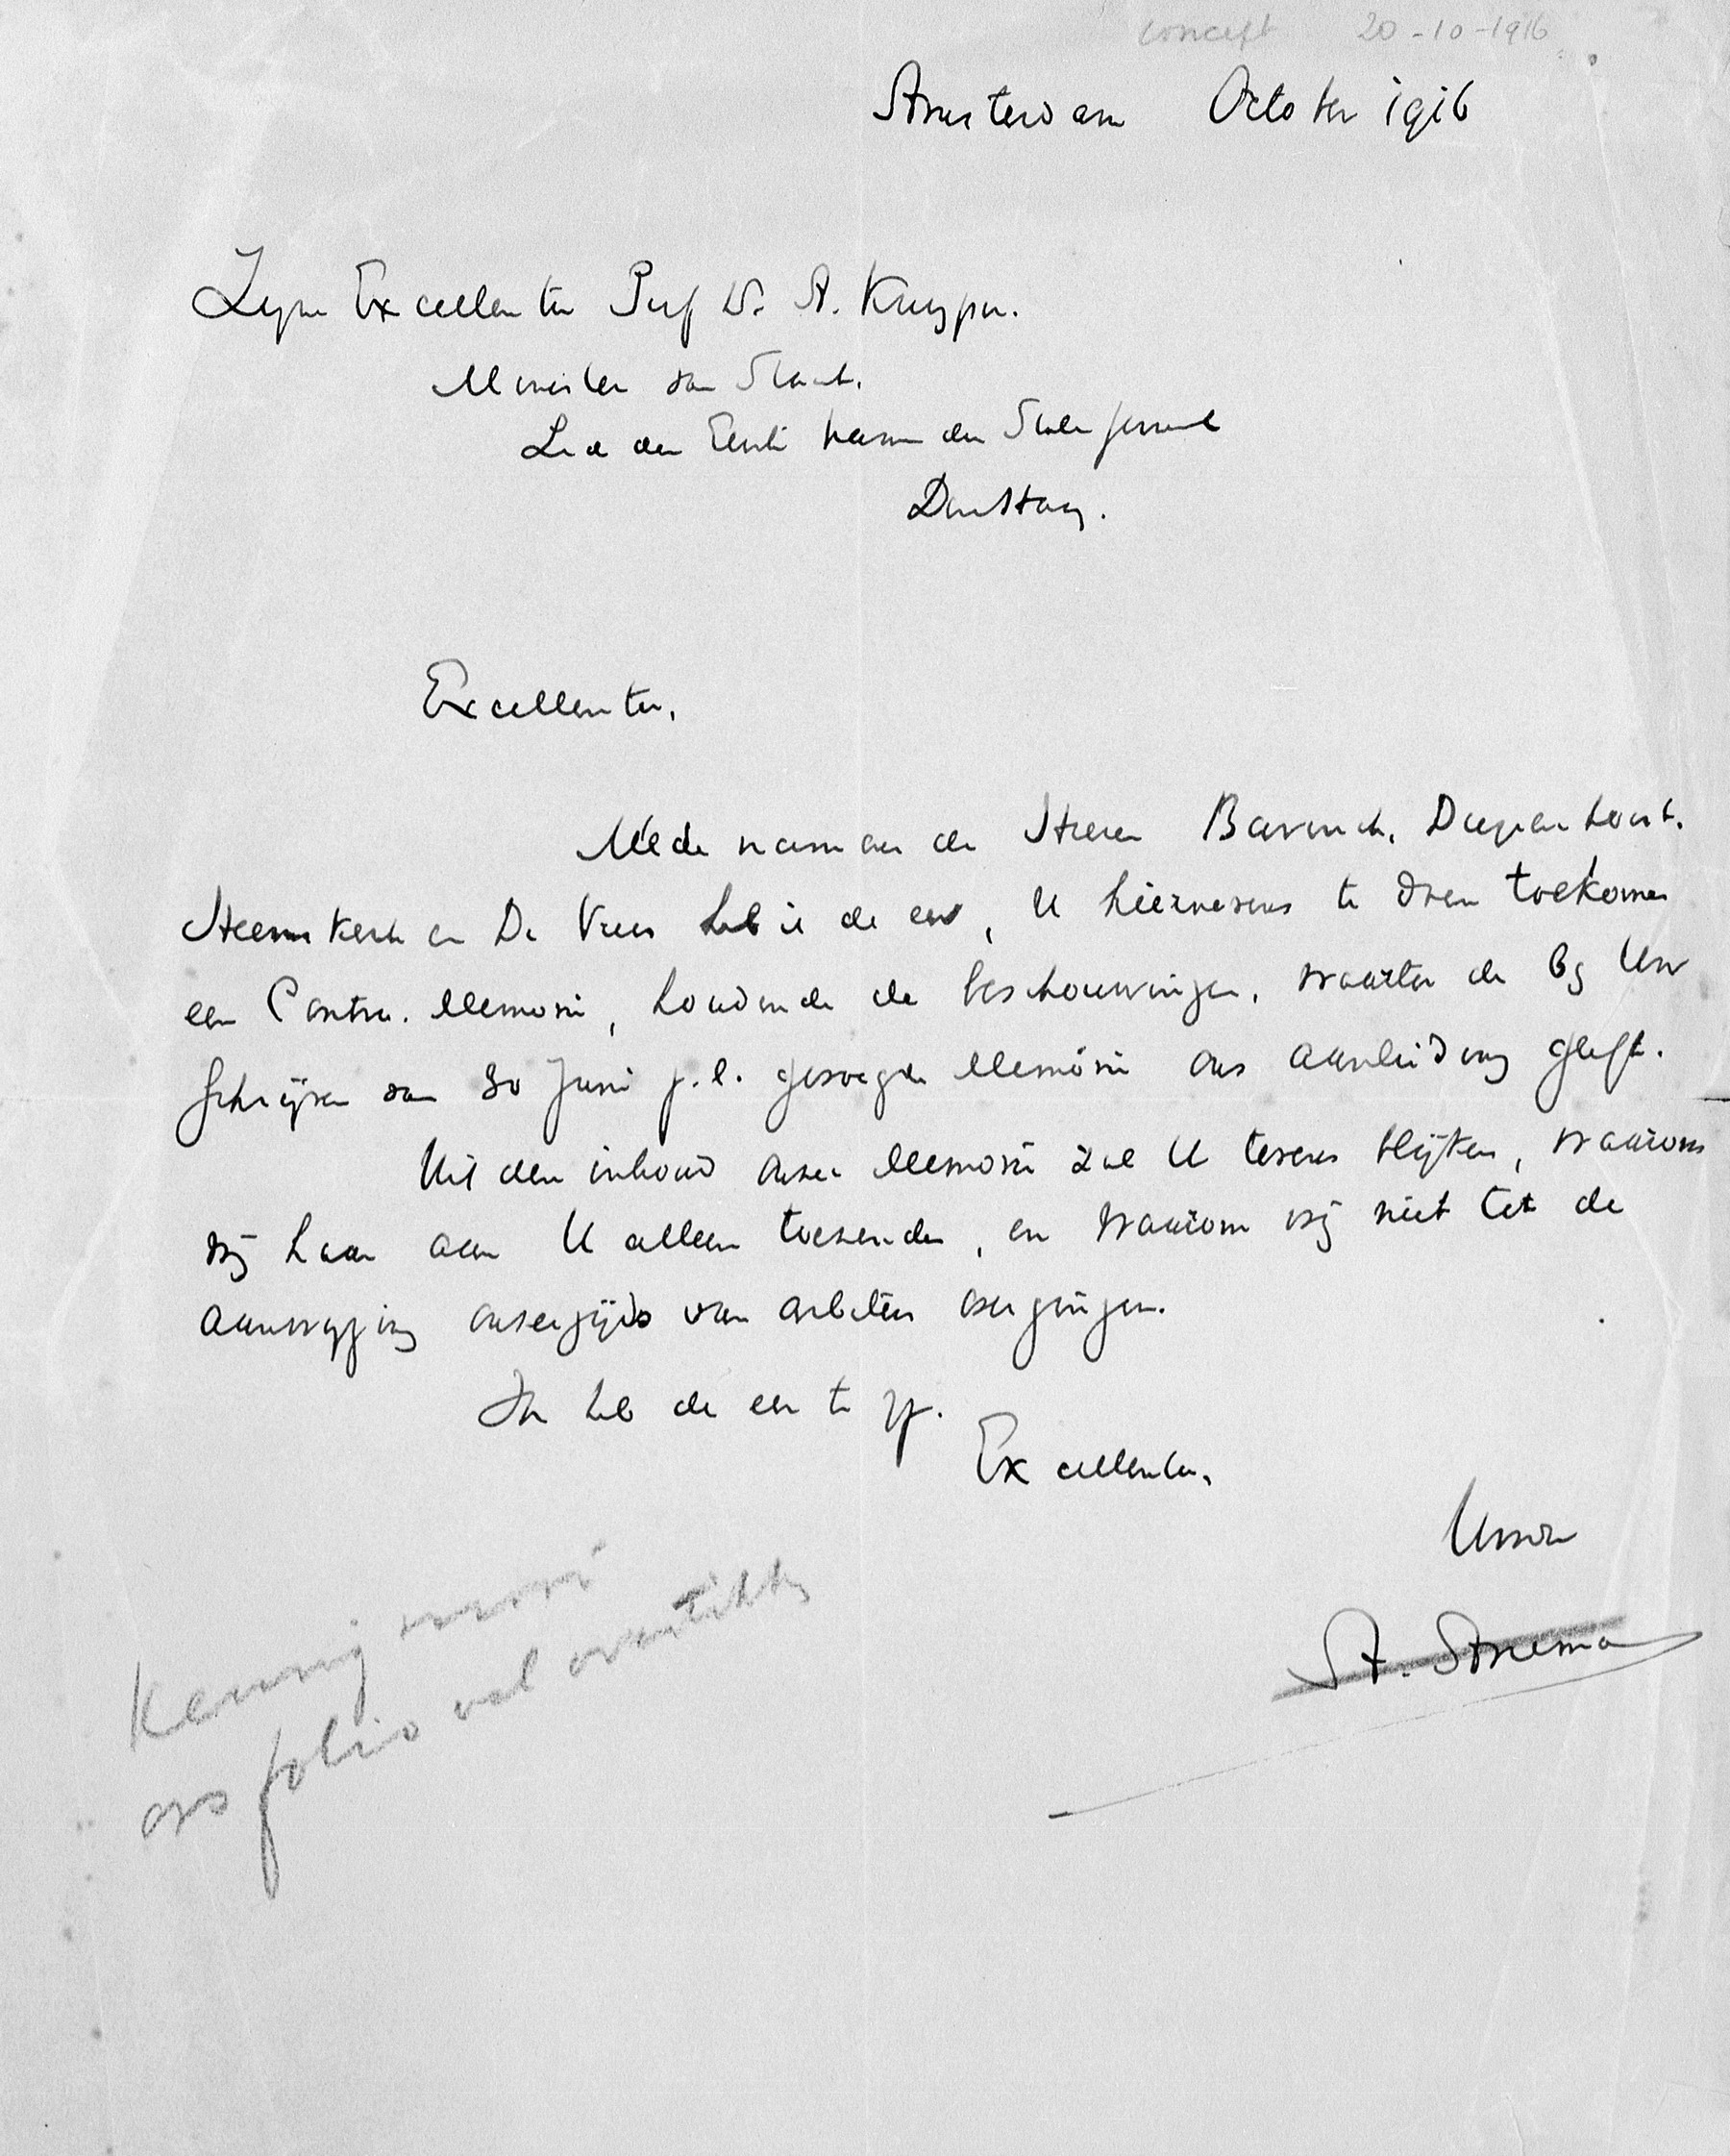 concept 20-10-1916
Amsterdam October 1916
Zijne Excellentie Prof Dr. A. Kuyper.
Minister van Staat.
Lid der Eerste Kamer der Staten generaal
Den Haag.
Excellentie,
Mede namens de Heeren Bavinck, Diepenhorst,
Heemskerk en De Vries heb ik de eer, U hiernevens te doen toekomen
een Contra-Memorie, houdende de beschouwingen, waartoe de bij Uw
schrijven van 30 Juni j.l. gevoegde Memorie ons aanleiding geeft.
Uit den inhoud onzer Memorie zal U tevens blijken, waarom
wij haar aan U alleen toezenden, en waarom wij niet tot de
aanwijzing onzerzijds van arbiters overgingen.
Ik heb de eer te zijn.
Excellentie,
Uwer
A. Anema
folio vel